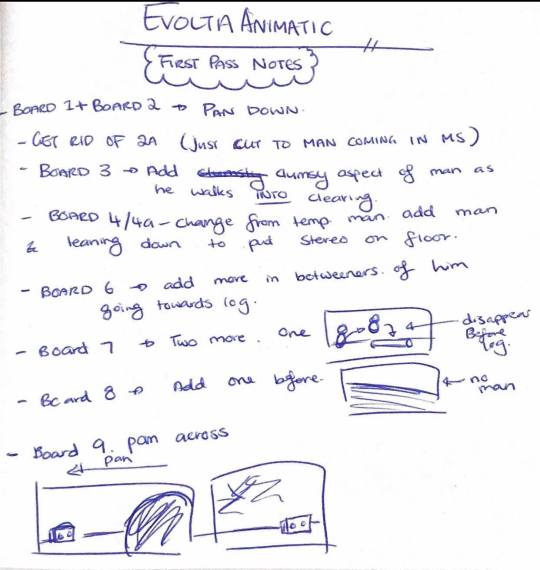 EVOLTA ANIMATIC
FIRST PASS NOTES
- BOARD 1 + BOARD 2 → PAN DOWN.
- GET RID OF 2A (JUST CUT TO MAN COMING IN MS)
- BOARD 3 → Add clumsy clumsy aspect of man as
he walks INTO clearing.
- BOARD 4/4a - change from temp man. add man
& leaning down to put stereo on floor.
- BOARD 6 → add more in betweeners of him
going towards log.
- Board 7 → Two more. One
disappears
Before
log.
- Board 8 → Add one before.
← no
man
- Board 9. pan across
pan